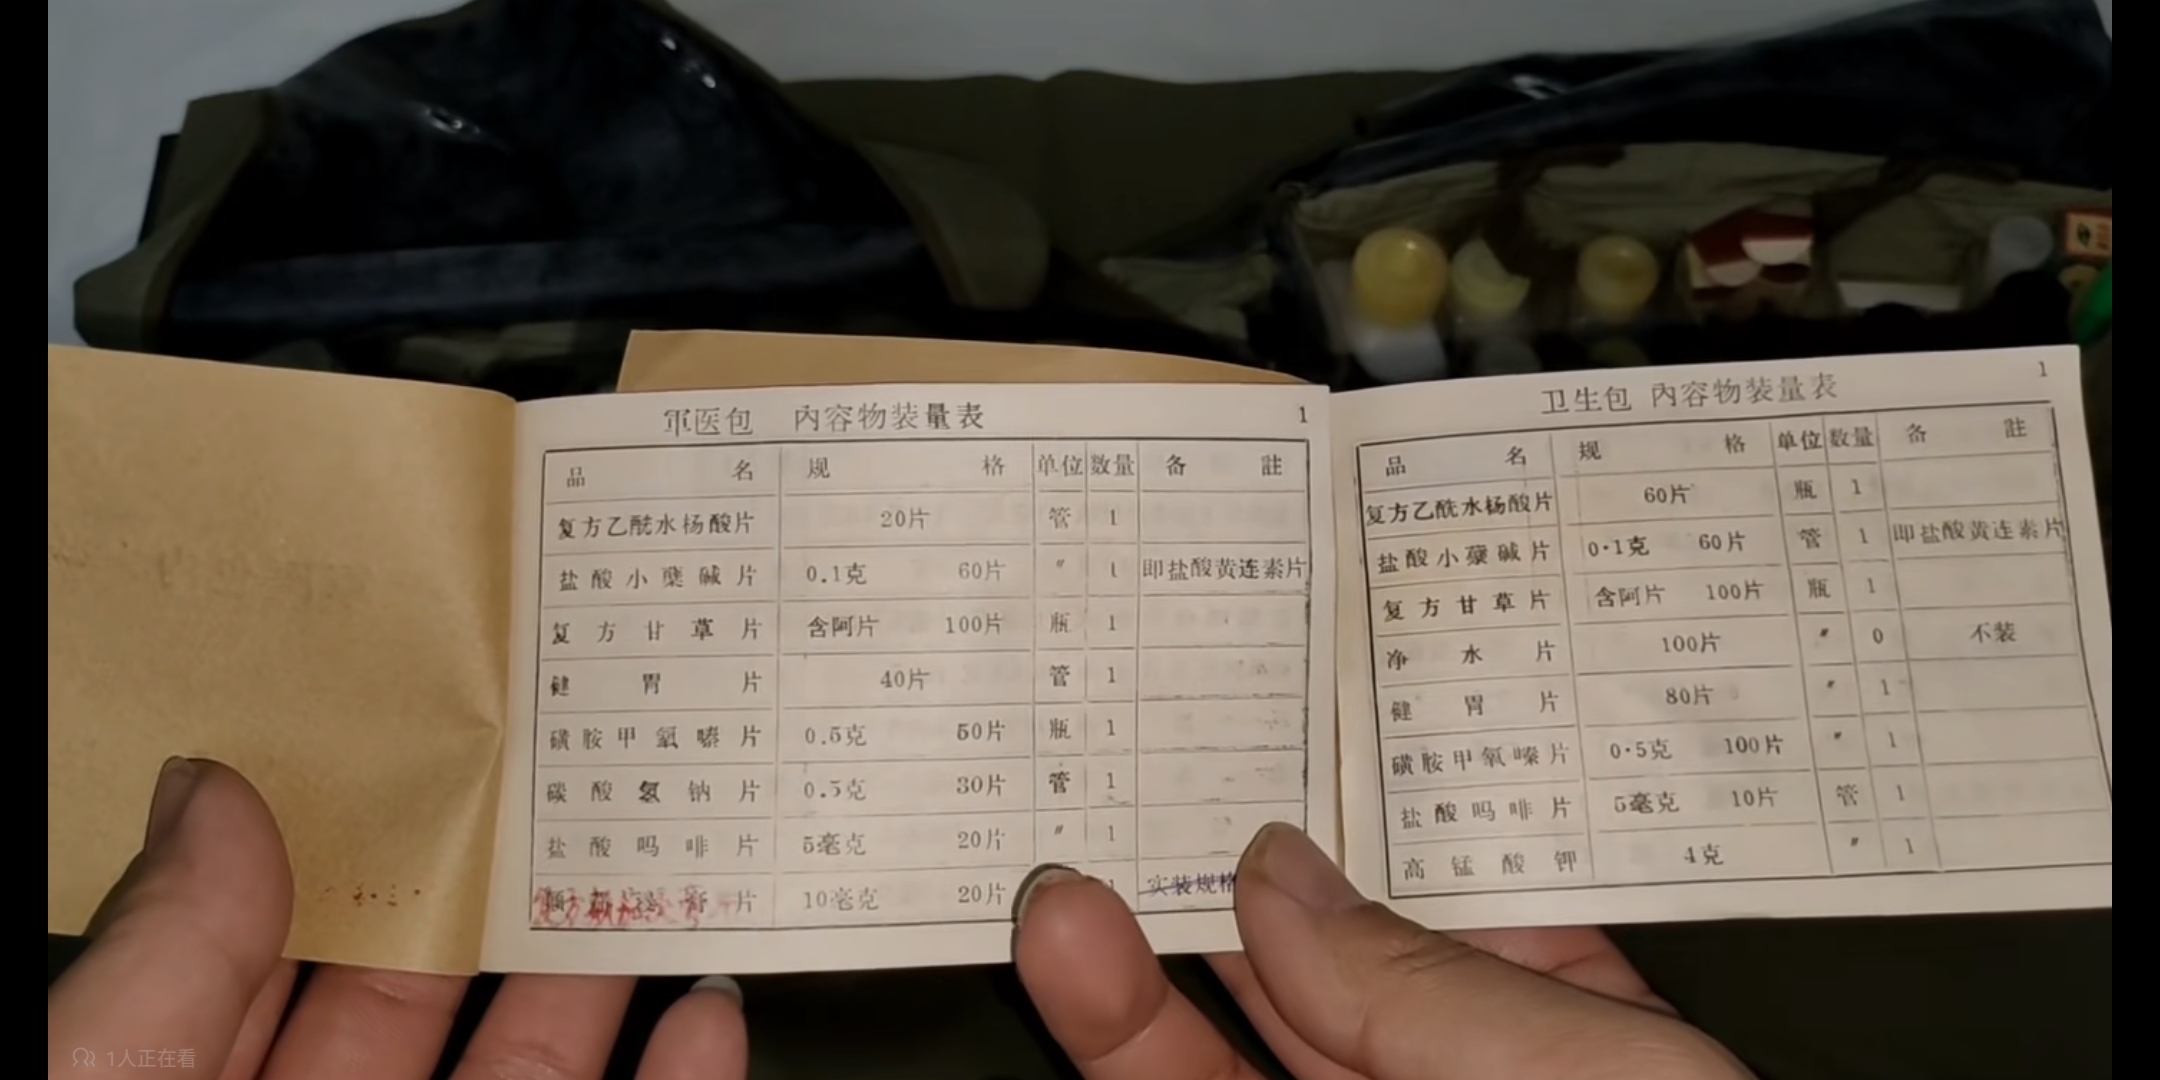 軍医包 内容物装量表 1
品 名 规 格 单位 数量 备 註
复方乙酰水杨酸片 20片 管 1
盐酸小蘗碱片 0.1克 60片 〃 1 即盐酸黄连素片
复方甘草片 含阿片 100片 瓶 1
健胃片 40片 管 1
磺胺甲氧嗪片 0.5克 50片 瓶 1
碳酸氢钠片 0.5克 30片 管 1
盐酸吗啡片 5毫克 20片 〃 1
片 10毫克 20片 1 实装规格
卫生包 内容物装量表 1
品 名 规 格 单位 数量 备 註
复方乙酰水杨酸片 60片 瓶 1
盐酸小蘗碱片 0·1克 60片 管 1 即盐酸黄连素片
复方甘草片 含阿片 100片 瓶 1
净水片 100片 〃 0 不装
健胃片 80片 〃 1
磺胺甲氧嗪片 0·5克 100片 〃 1
盐酸吗啡片 5毫克 10片 管 1
高锰酸钾 4克 〃 1
1人正在看